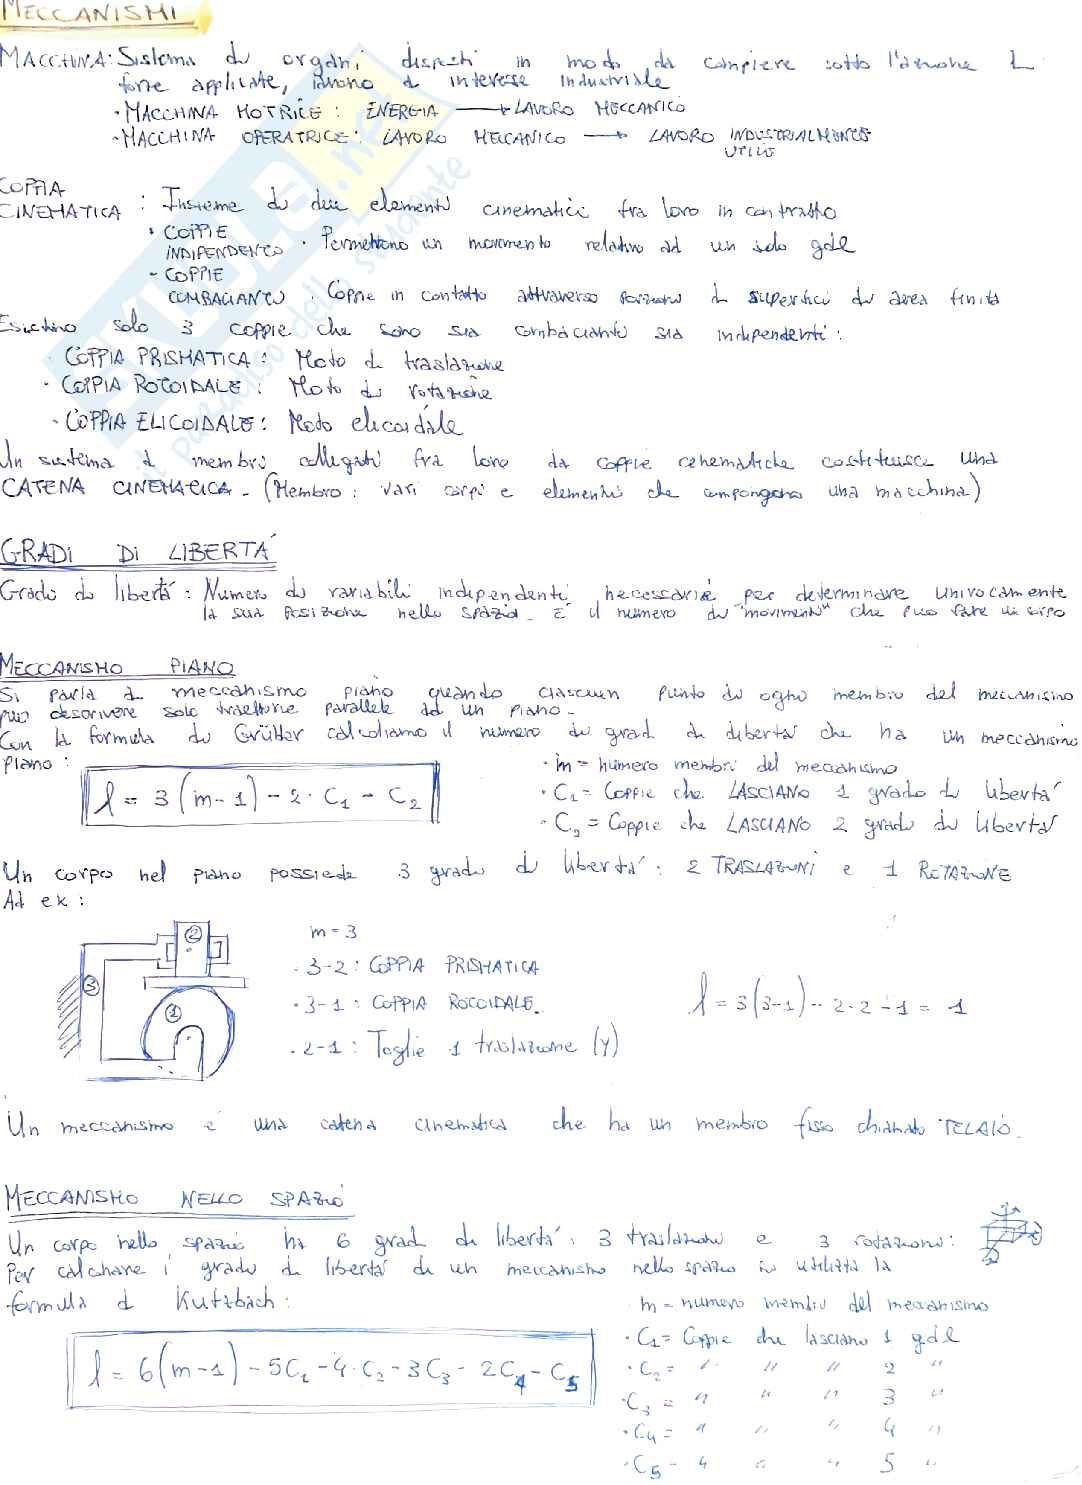 MECCANISMI
MACCHINA: Sistema di organi disposti in modo da compiere sotto l'azione di
forze applicate, lavoro di interesse industriale
· MACCHINA MOTRICE: ENERGIA → LAVORO MECCANICO
· MACCHINA OPERATRICE: LAVORO MECCANICO → LAVORO INDUSTRIALMENTE
UTILE
COPPIA
CINEMATICA: Insieme di due elementi cinematici fra loro in contatto
· COPPIE
INDIPENDENTI · Permettono un movimento relativo ad un solo gdl
- COPPIE
COMBACIANTI. Coppie in contatto attraverso porzioni di superfici di area finita
Esistono solo 3 coppie che sono sia combacianti sia indipendenti:
· COPPIA PRISMATICA: Moto di traslazione
· COPPIA ROTOIDALE: Moto di rotazione
· COPPIA ELICOIDALE: Moto elicoidale
Un sistema di membri collegati fra loro da coppie cinematiche costituisce una
CATENA CINEMATICA - (Membro: vari corpi e elementi che compongono una macchina)
GRADI DI LIBERTÀ
Gradi di libertà: Numero di variabili indipendenti necessarie per determinare univocamente
la sua posizione nello spazio. È il numero di "movimenti" che può fare un corpo
MECCANISMO PIANO
Si parla di meccanismo piano quando ciascun punto di ogni membro del meccanismo
può descrivere solo traiettorie parallele ad un piano-
Con la formula di Grübler calcoliamo il numero di gradi di libertà che ha un meccanismo
piano:
l = 3(m-1) - 2·C1 - C2
· m = numero membri del meccanismo
· C1 = Coppie che LASCIANO 1 grado di libertà
· C2 = Coppie che LASCIANO 2 gradi di libertà
Un corpo nel piano possiede 3 gradi di libertà: 2 TRASLAZIONI e 1 ROTAZIONE
Ad ex:
2
3
1
m=3
· 3-2: COPPIA PRISMATICA
· 3-1: COPPIA ROCOIDALE.
· 2-1: Toglie 1 traslazione (Y)
l = 3(3-1) - 2·2 - 1 = 1
Un meccanismo è una catena cinematica che ha un membro fisso chiamato TELAIO.
MECCANISMO NELLO SPAZIO
Un corpo nello spazio ha 6 gradi di libertà: 3 traslazioni e 3 rotazioni:
Per calcolare i gradi di libertà di un meccanismo nello spazio si utilizza la
formula di Kutzbach:
l = 6(m-1) - 5C1 - 4·C2 - 3C3 - 2C4 - C5
m = numero membri del meccanismo
· C1 = Coppie che lasciano 1 gdl
· C2 = " " " 2 "
· C3 = " " " 3 "
· C4 = " " " 4 "
· C5 = " " " 5 "
SKUOLA.net
il paradiso dello studente